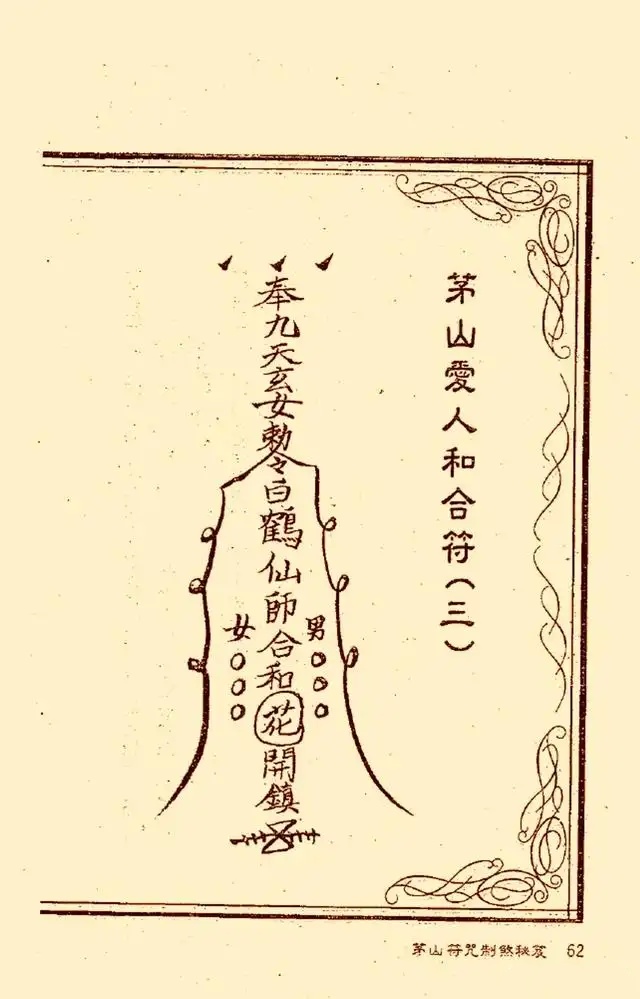 茅山愛人和合符(三)
奉九天玄女勅令白鶴仙師合和花開鎮
男○○○
女○○○
茅山符咒制煞秘笈 62